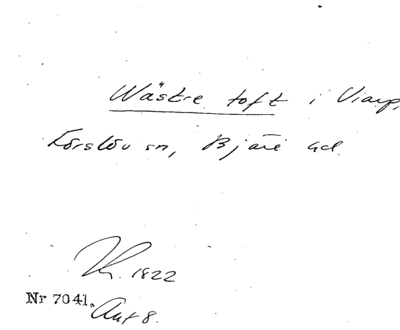 Wästre toft i Viarp,
Förslöv sn, Bjäre hd.
1822
Nr 7041. Akt 8.